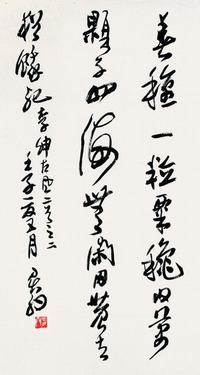 春種一粒粟秋收萬
顆子四海無閑田農夫
猶餓死 李紳古風二首之二
壬子 月